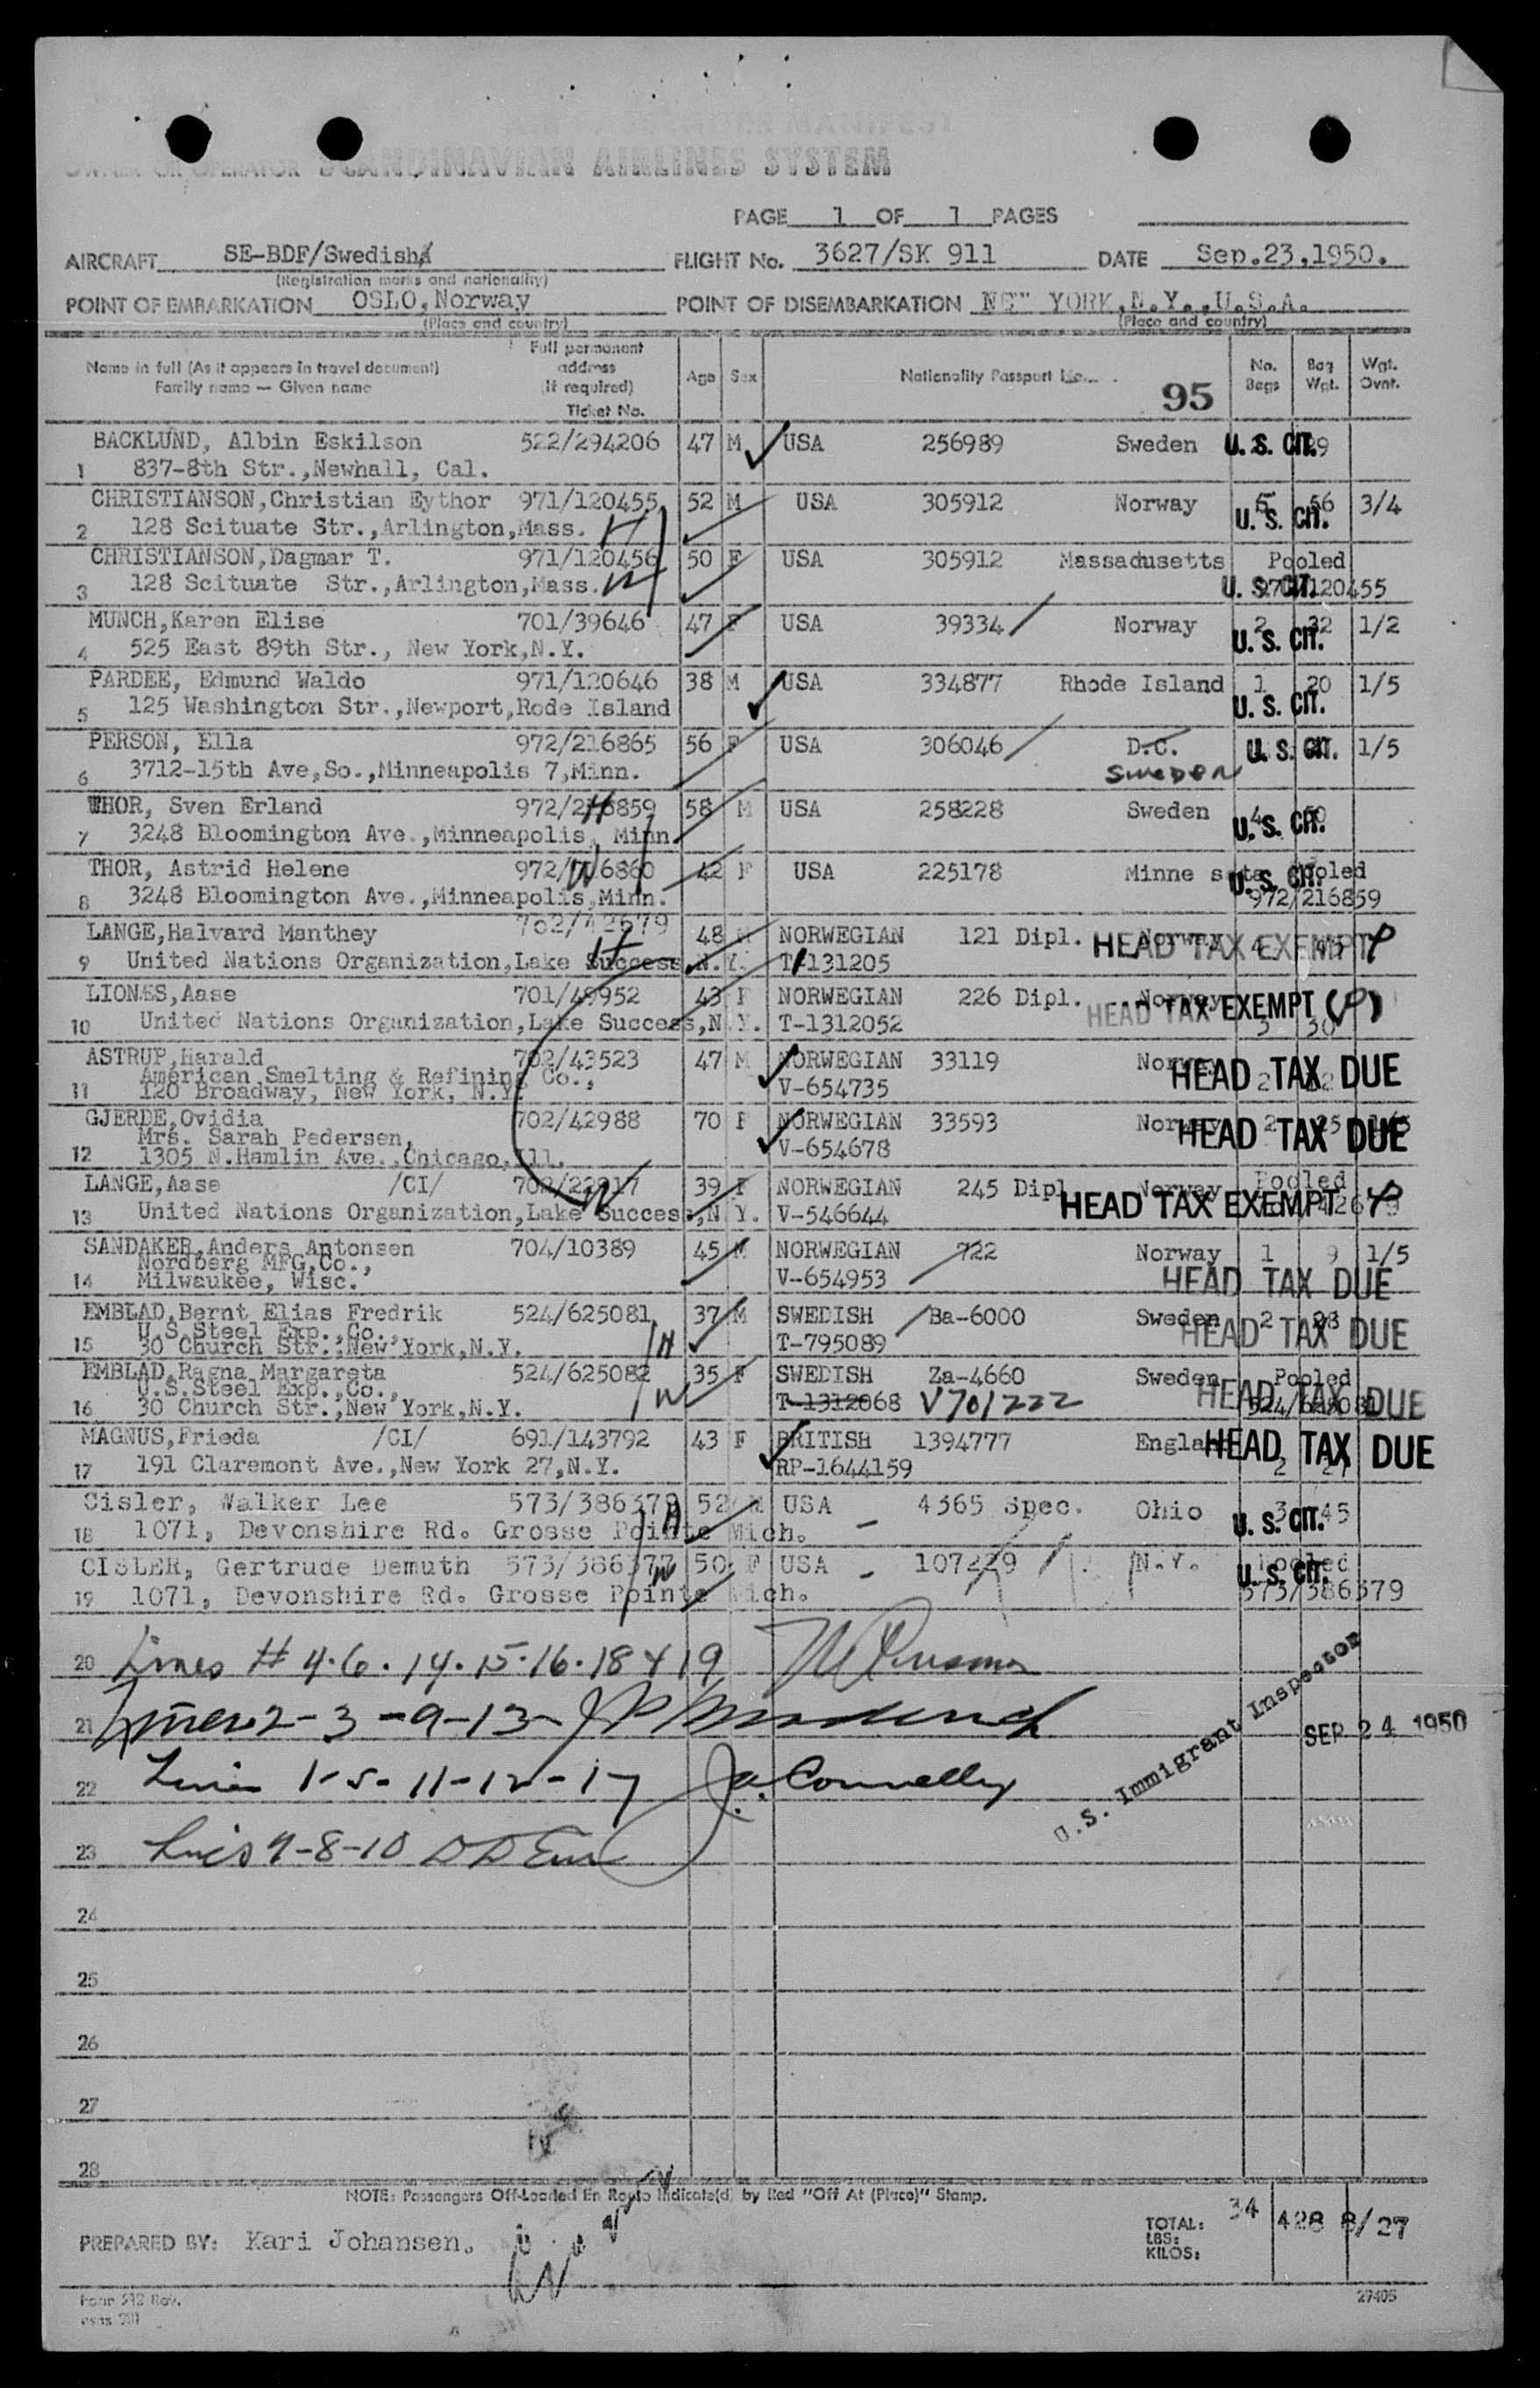 AIR PASSENGER MANIFEST
OWNER OR OPERATOR SCANDINAVIAN AIRLINES SYSTEM
PAGE 1 OF 1 PAGES
AIRCRAFT SE-BDF/Swedish FLIGHT No. 3627/SK 911 DATE Sep.23,1950.
(Registration marks and nationality)
POINT OF EMBARKATION OSLO,Norway POINT OF DISEMBARKATION NEW YORK,N.Y.,U.S.A.
(Place and country) (Place and country)
Name in full (As it appears in travel document) Family name — Given name Full permanent address (if required) Ticket No. Age Sex Nationality Passport No. 95 No. Bags Bag Wgt. Wgt. Ovnt.
BACKLUND, Albin Eskilson 522/294206 47 M USA 256989 Sweden U. S. CIT.
1 837-8th Str.,Newhall, Cal.
CHRISTIANSON,Christian Eythor 971/120455 52 M USA 305912 Norway 5 56 3/4
2 128 Scituate Str.,Arlington,Mass. H U. S. CIT.
CHRISTIANSON,Dagmar T. 971/120456 50 F USA 305912 Massadusetts Pooled
3 128 Scituate Str.,Arlington,Mass. W U. S. CIT. 971/120455
MUNCH,Karen Elise 701/39646 47 F USA 39334 Norway 2 32 1/2
4 525 East 89th Str., New York,N.Y. U. S. CIT.
PARDEE, Edmund Waldo 971/120646 38 M USA 334877 Rhode Island 1 20 1/5
5 125 Washington Str.,Newport,Rode Island U. S. CIT.
PERSON, Ella 972/216865 56 F USA 306046 D.C. U. S. CIT. 1/5
6 3712-15th Ave,So.,Minneapolis 7,Minn. SWEDEN
THOR, Sven Erland 972/216859 H 58 M USA 258228 Sweden 4
7 3248 Bloomington Ave.,Minneapolis, Minn. U. S. CIT.
THOR, Astrid Helene 972/216860 W 42 F USA 225178 Minne sota Pooled
8 3248 Bloomington Ave.,Minneapolis,Minn. U. S. CIT. 972/216859
LANGE,Halvard Manthey 702/42679 48 M NORWEGIAN 121 Dipl. Norway HEAD TAX EXEMPT
9 United Nations Organization,Lake Success,N.Y. H T-131205
LIONÆS,Aase 701/49952 43 F NORWEGIAN 226 Dipl. Norway HEAD TAX EXEMPT (P)
10 United Nations Organization,Lake Success,N.Y. T-1312052 3 30
ASTRUP,Harald 702/43523 47 M NORWEGIAN 33119 Norway HEAD TAX DUE
American Smelting & Refining Co.,
11 120 Broadway, New York, N.Y. V-654735
GJERDE,Ovidia 702/42988 70 F NORWEGIAN 33593 Norway 2 25 1/5 HEAD TAX DUE
Mrs. Sarah Pedersen,
12 1305 N.Hamlin Ave.,Chicago,Ill. V-654678
LANGE,Aase /CI/ 39 F NORWEGIAN 245 Dipl. Norway Pooled HEAD TAX EXEMPT
13 United Nations Organization,Lake Success,N.Y. W V-546644
SANDAKER,Anders Antonsen 704/10389 45 M NORWEGIAN 722 Norway 1 9 1/5
Nordberg MFG,Co.,
14 Milwaukee, Wisc. V-654953 HEAD TAX DUE
EMBLAD,Bernt Elias Fredrik 524/625081 37 M SWEDISH Ba-6000 Sweden 2 28 HEAD TAX DUE
U.S.Steel Exp.,Co.,
15 30 Church Str.,New York,N.Y. H T-795089
EMBLAD,Ragna Margareta 524/625082 35 F SWEDISH Za-4660 Sweden Pooled HEAD TAX DUE
U.S.Steel Exp.,Co.,
16 30 Church Str.,New York,N.Y. W T-1312068 V701222 524/625081
MAGNUS,Frieda /CI/ 691/143792 43 F BRITISH 1394777 England HEAD TAX DUE
17 191 Claremont Ave.,New York 27,N.Y. RP-1644159 2 21
Cisler, Walker Lee 573/386379 52 M USA 4365 Spec. Ohio 3 45
18 1071, Devonshire Rd. Grosse Pointe Mich. H U. S. CIT.
CISLER, Gertrude Demuth 573/386377 50 F USA 107229 N.Y. Pooled
19 1071, Devonshire Rd. Grosse Pointe Mich. W U. S. CIT. 573/386379
20 Lines # 4.6.14.15.16.18 & 19
21 Lines 2-3-9-13-
U.S. Immigrant Inspector SEP 24 1950
22 Lines 1-5-11-12-17 J.A. Connelly
23 Lines 7-8-10
24
25
26
27
28
NOTE: Passengers Off-Loaded En Route Indicate(d) by Red "Off At (Place)" Stamp.
PREPARED BY: Kari Johansen. TOTAL: LBS: KILOS: 34 428 8/27
Form 212 Rev. 29405